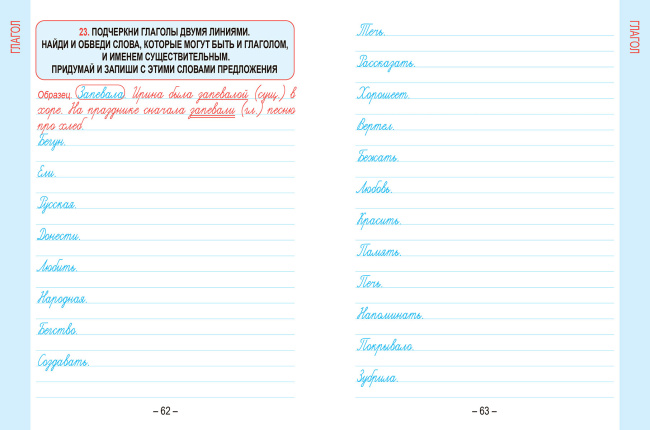 ГЛАГОЛ
23. ПОДЧЕРКНИ ГЛАГОЛЫ ДВУМЯ ЛИНИЯМИ.
НАЙДИ И ОБВЕДИ СЛОВА, КОТОРЫЕ МОГУТ БЫТЬ И ГЛАГОЛОМ,
И ИМЕНЕМ СУЩЕСТВИТЕЛЬНЫМ.
ПРИДУМАЙ И ЗАПИШИ С ЭТИМИ СЛОВАМИ ПРЕДЛОЖЕНИЯ
Образец. Запевала. Ирина была запевалой (сущ.) в
хоре. На празднике сначала запевали (гл.) песню
про хлеб.
Бегун.
Ели.
Русская.
Донести.
Любить.
Народная.
Бегство.
Создавать.
– 62 –
Течь.
Рассказать.
Хорошеет.
Вертел.
Бежать.
Любовь.
Красить.
Память.
Печь.
Напоминать.
Покрывало.
Зубрила.
– 63 –
ГЛАГОЛ